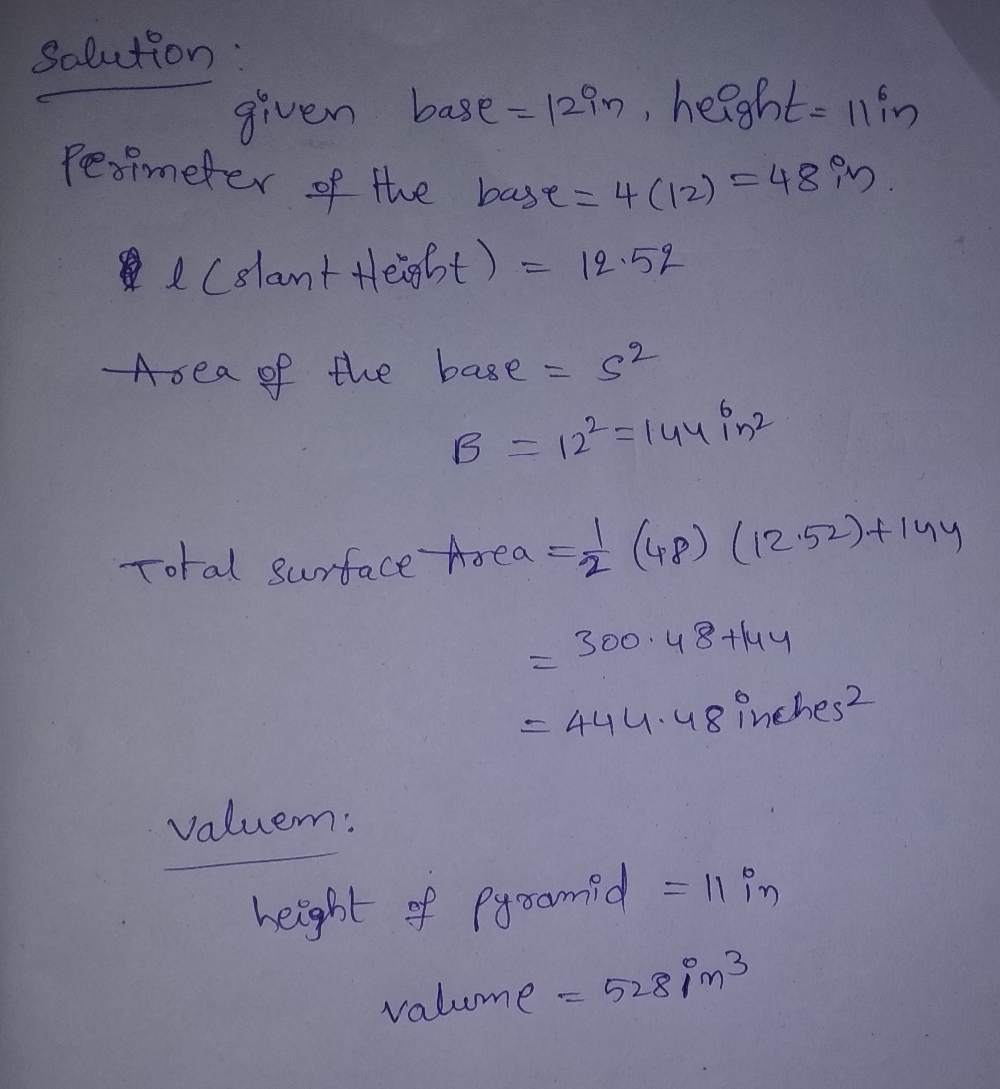 Solution :
given base = 12in, height = 11in
Perimeter of the base = 4(12) = 48 in.
l (slant Height) = 12.52
Area of the base = s²
B = 12² = 144 in²
Total surface Area = 1/2 (48) (12.52) + 144
= 300.48 + 144
= 444.48 inches²
valuem :
height of pyramid = 11 in
valume = 528 in³